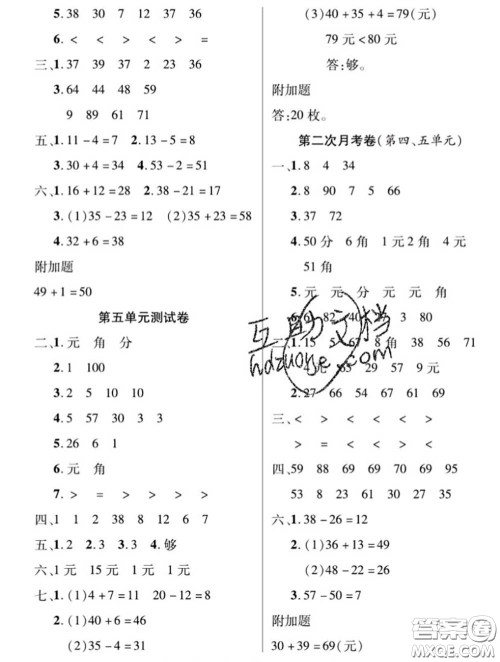 5. 38 30 5 7 37 36
6. < > < > > =
三、1. 37 39 37 2 23 36
3. 64 44 48 59
9 89 61 71
五、1. 11－4＝7 2. 13－5＝8
3. 30＋4＝34 4. 53－2＝51
六、1. 16＋12＝28 2. 18－8＝10
3. (1)35－23＝12 (2)35＋23＝58
4. 32＋6＝38
附加题
49＋1＝50
第五单元测试卷
二、1. 元 角 分
2. 1 100
3. 2 5 10 10
4. 5 57 30 3 2
5. 26 6 1
6. 元 角
7. > = > > > <
四、1 1 2 38 8 12 6 7
五、1. 2 2. 3 3. 3 4. 够
六、1元 15元 1元 1元
七、1. (1)4＋7＝11 20－12＝8
2. (1)40＋6＝46
(2)35－4＝31
(3)40＋35＋4＝79(元)
79元<80元
答:够。
附加题
答:20枚。
第二次月考卷(第四、五单元)
一、1. 8 4 34
2. 8 90 7 5 66
3. 37 72
4. 50分 6角 1元2角 4元
51角
5. 元 元 分 元 元 角
82 40 3 80
1. 15 5 67 8角 38 56 71
65 29 57 9元
2. 27 66 54 64 61 69
三、< > < < < <
> = < < > <
四、59 88 56 69 70 54 95
53 8 23 61 35 24 60
六、1. 38－26＝12
2. (1)36＋13＝49
(2)48－22＝26
3. 57－50＝7
附加题
30＋39＝69(元)
互助文档
hdzuoye.com
答案圈
MXQE.COM